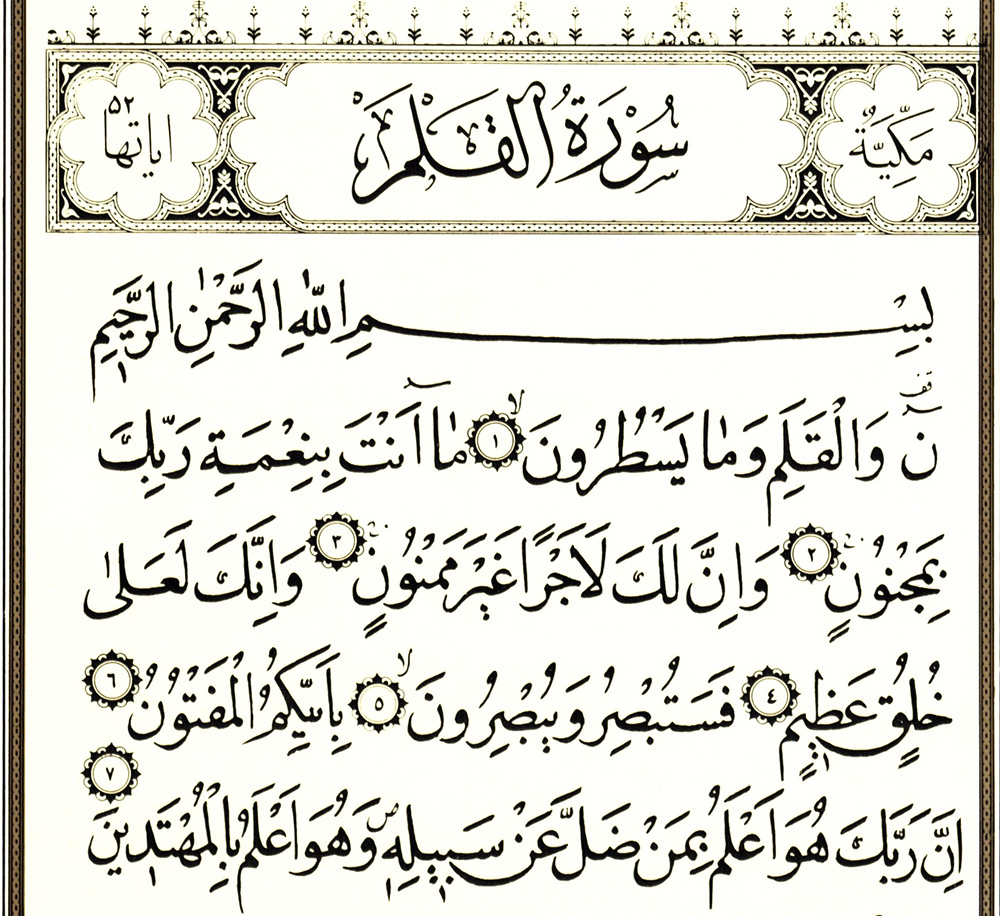 مَكِّيَّةٌ سُورَةُ الْقَلَمِ اياتها ٥٢
بِسْمِ اللّٰهِ الرَّحْمٰنِ الرَّحٖيمِ
نٓ ۠ وَالْقَلَمِ وَمَا يَسْطُرُونَۙ ﴿١﴾ مَٓا اَنْتَ بِنِعْمَةِ رَبِّكَ
بِمَجْنُونٍۚ ﴿٢﴾ وَاِنَّ لَكَ لَاَجْرًا غَيْرَ مَمْنُونٍۚ ﴿٣﴾ وَاِنَّكَ لَعَلٰى
خُلُقٍ عَظٖيمٍ ﴿٤﴾ فَسَتُبْصِرُ وَيُبْصِرُونَۙ ﴿٥﴾ بِاَيِّكُمُ الْمَفْتُونُ ﴿٦﴾
اِنَّ رَبَّكَ هُوَ اَعْلَمُ بِمَنْ ضَلَّ عَنْ سَبٖيلِهٖۖ وَهُوَ اَعْلَمُ بِالْمُهْتَدٖينَ ﴿٧﴾